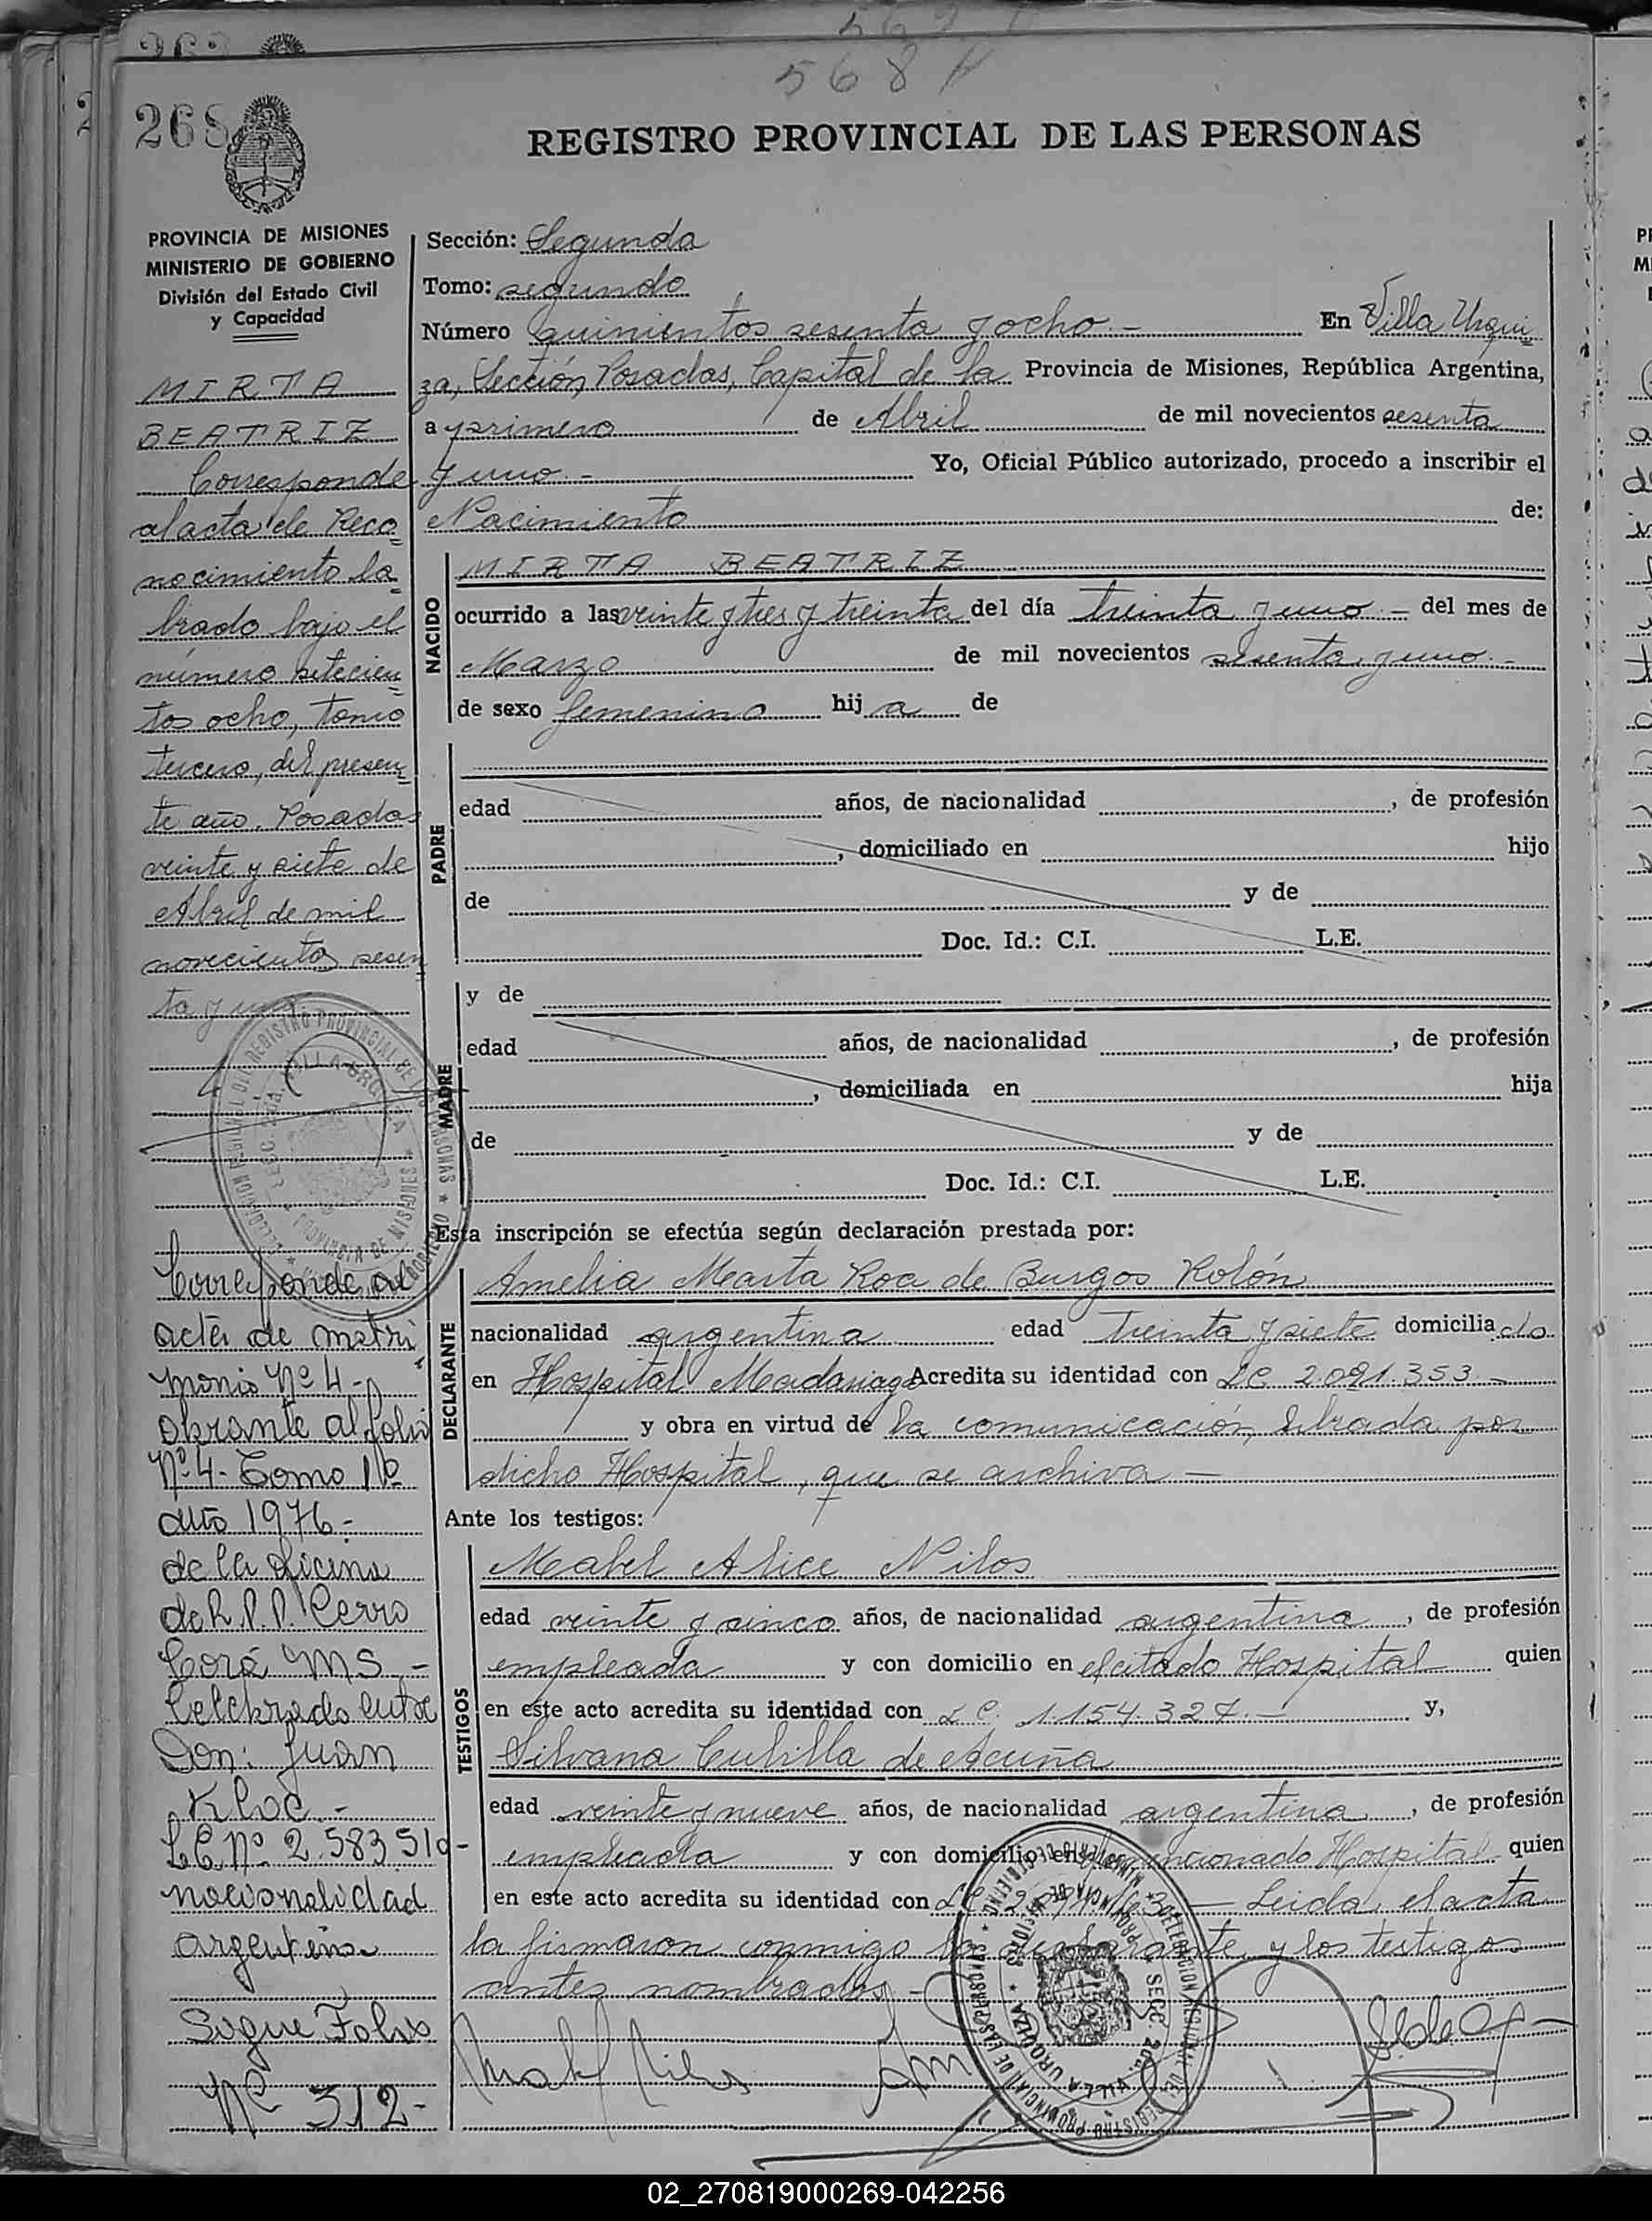 568
268
REGISTRO PROVINCIAL DE LAS PERSONAS
PROVINCIA DE MISIONES
MINISTERIO DE GOBIERNO
División del Estado Civil
y Capacidad
MIRTA
BEATRIZ
Corresponde
al acta de Reco
nocimiento la
brado bajo el
número setecien
tos ocho, tomo
tercero, del presen
te año. Posadas
veinte y siete de
Abril de mil
novecientos sesen
ta y uno
Corresponde al
acta de matri
monio Nº 4-
obrante al folio
Nº 4- Tomo 1º
año 1976-
de la oficina
de R.P.P. Cerro
Corá Mns-
Celebrado entre
Don: Juan
Kloc-
nacionalidad
argentina
Sigue Folio
Nº 312-
Sección: Segunda
Tomo: segundo
Número quinientos sesenta y ocho.- En Villa Urqui
za, Sección Posadas, Capital de la Provincia de Misiones, República Argentina,
a primero de Abril de mil novecientos sesenta
y uno.- Yo, Oficial Público autorizado, procedo a inscribir el
Nacimiento de:
NACIDO
MIRTA BEATRIZ
ocurrido a las veinte y tres y treinta del día treinta y uno.- del mes de
Marzo de mil novecientos sesenta y uno.-
de sexo femenino hij a de
PADRE
edad años, de nacionalidad , de profesión
, domiciliado en hijo
de y de
Doc. Id.: C.I. L.E.
MADRE
y de
edad años, de nacionalidad , de profesión
, domiciliada en hija
de y de
Doc. Id.: C.I. L.E.
Esta inscripción se efectúa según declaración prestada por:
DECLARANTE
Amelia Marta Roa de Burgos Rolón
nacionalidad argentina edad treinta y siete domicilia do
en Hospital Madariaga Acredita su identidad con LC 2.091.353.-
y obra en virtud de la comunicación, librada por
dicho Hospital, que se archiva-
Ante los testigos:
TESTIGOS
Mabel Alice Nilos
edad veinte y cinco años, de nacionalidad argentina, de profesión
empleada y con domicilio en el citado Hospital quien
en este acto acredita su identidad con L C. 1.154.327.- y,
Silvana Cubilla de Acuña
edad veinte y nueve años, de nacionalidad argentina, de profesión
empleada y con domicilio en Hospital quien
en este acto acredita su identidad con Leida, el acta
la firmaron conmigo la declarante y los testigos
antes nombrados.-
02_270819000269-042256